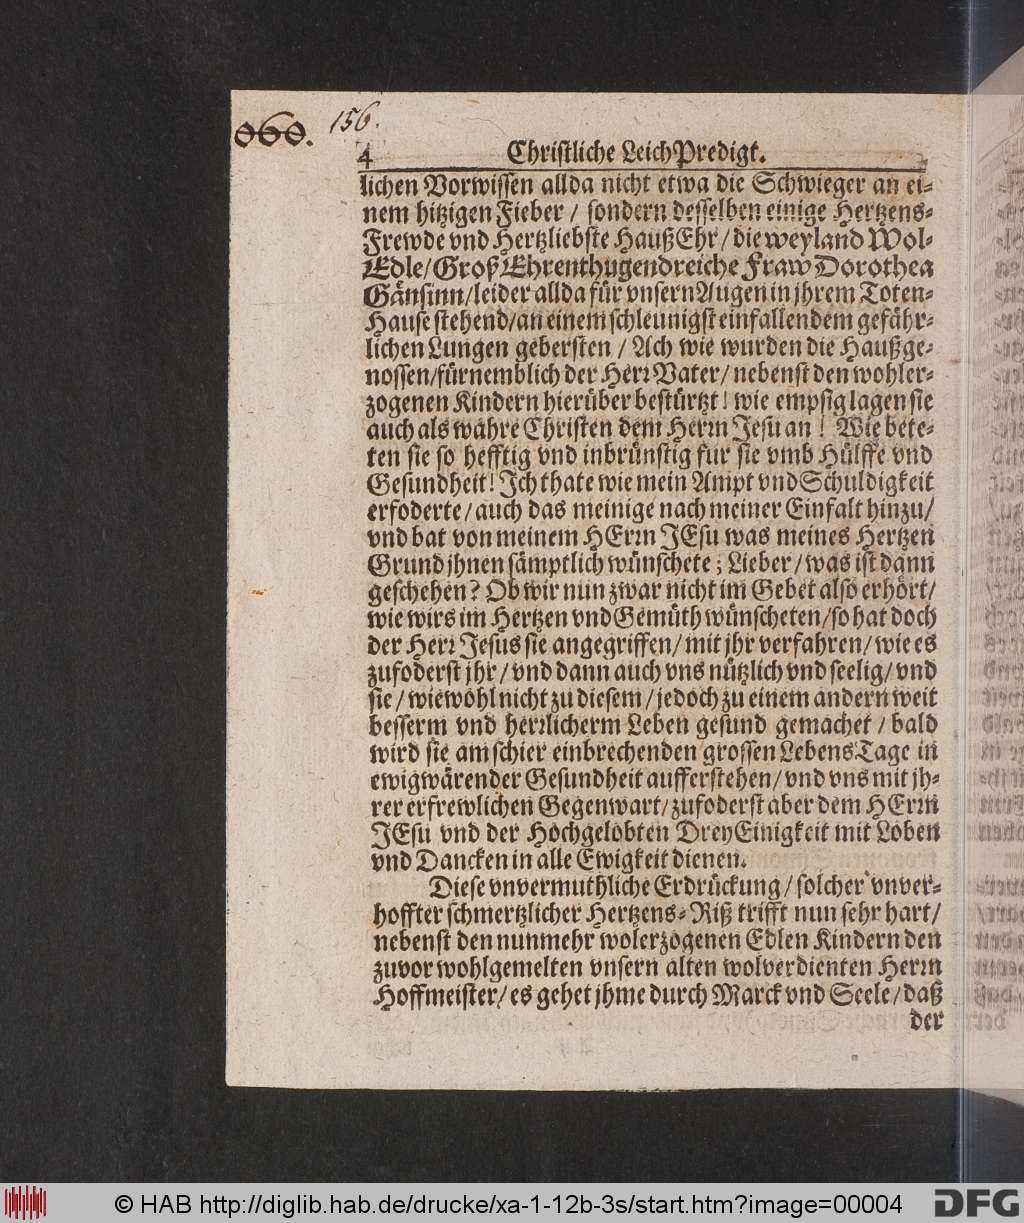 060. 156.
4 Christliche LeichPredigt.
lichen Vorwissen allda nicht etwa die Schwieger an ei-
nem hitzigen Fieber / sondern desselben einige Hertzens-
Frewde vnd Hertzliebste HaußEhr / die weyland Wol-
Edle / GroßEhrenthugendreiche Fraw Dorothea
Gänsinn / leider allda für vnsern Augen in jhrem Toten-
Hause stehend / an einem schleunigst einfallendem gefähr-
lichen Lungen gebersten / Ach wie wurden die Haußge-
nossen / fürnemblich der Herr Vater / nebenst den wohler-
zogenen Kindern hierüber bestürtzt! wie empsig lagen sie
auch als wahre Christen dem Herrn Jesu an! Wie bete-
ten sie so hefftig vnd inbrünstig fur sie vmb Hülffe vnd
Gesundheit! Ich thate wie mein Ampt vnd Schuldigkeit
erfoderte / auch das meinige nach meiner Einfalt hinzu /
vnd bat von meinem HErrn JEsu was meines Hertzen
Grund jhnen sämptlich wünschete; Lieber / was ist dann
geschehen? Ob wir nun zwar nicht im Gebet also erhört /
wie wirs im Hertzen vnd Gemüth wünscheten / so hat doch
der Herr Jesus sie angegriffen / mit jhr verfahren / wie es
zufoderst jhr / vnd dann auch vns nützlich vnd seelig / vnd
sie / wiewohl nicht zu diesem / jedoch zu einem andern weit
besserm vnd herrlicherm Leben gesund gemachet / bald
wird sie am schier einbrechenden grossen LebensTage in
ewigwärender Gesundheit aufferstehen / vnd vns mit jh-
rer erfrewlichen Gegenwart / zufoderst aber dem HErrn
JEsu vnd der Hochgelobten DreyEinigkeit mit Loben
vnd Dancken in alle Ewigkeit dienen.
Diese vnvermuthliche Erdrückung / solcher vnver-
hoffter schmertzlicher Hertzens-Riß trifft nun sehr hart /
nebenst den nunmehr wolerzogenen Edlen Kindern den
zuvor wohlgemelten vnsern alten wolverdienten Herrn
Hoffmeister / es gehet jhme durch Marck vnd Seele / daß
der
© HAB http://diglib.hab.de/drucke/xa-1-12b-3s/start.htm?image=00004
DFG